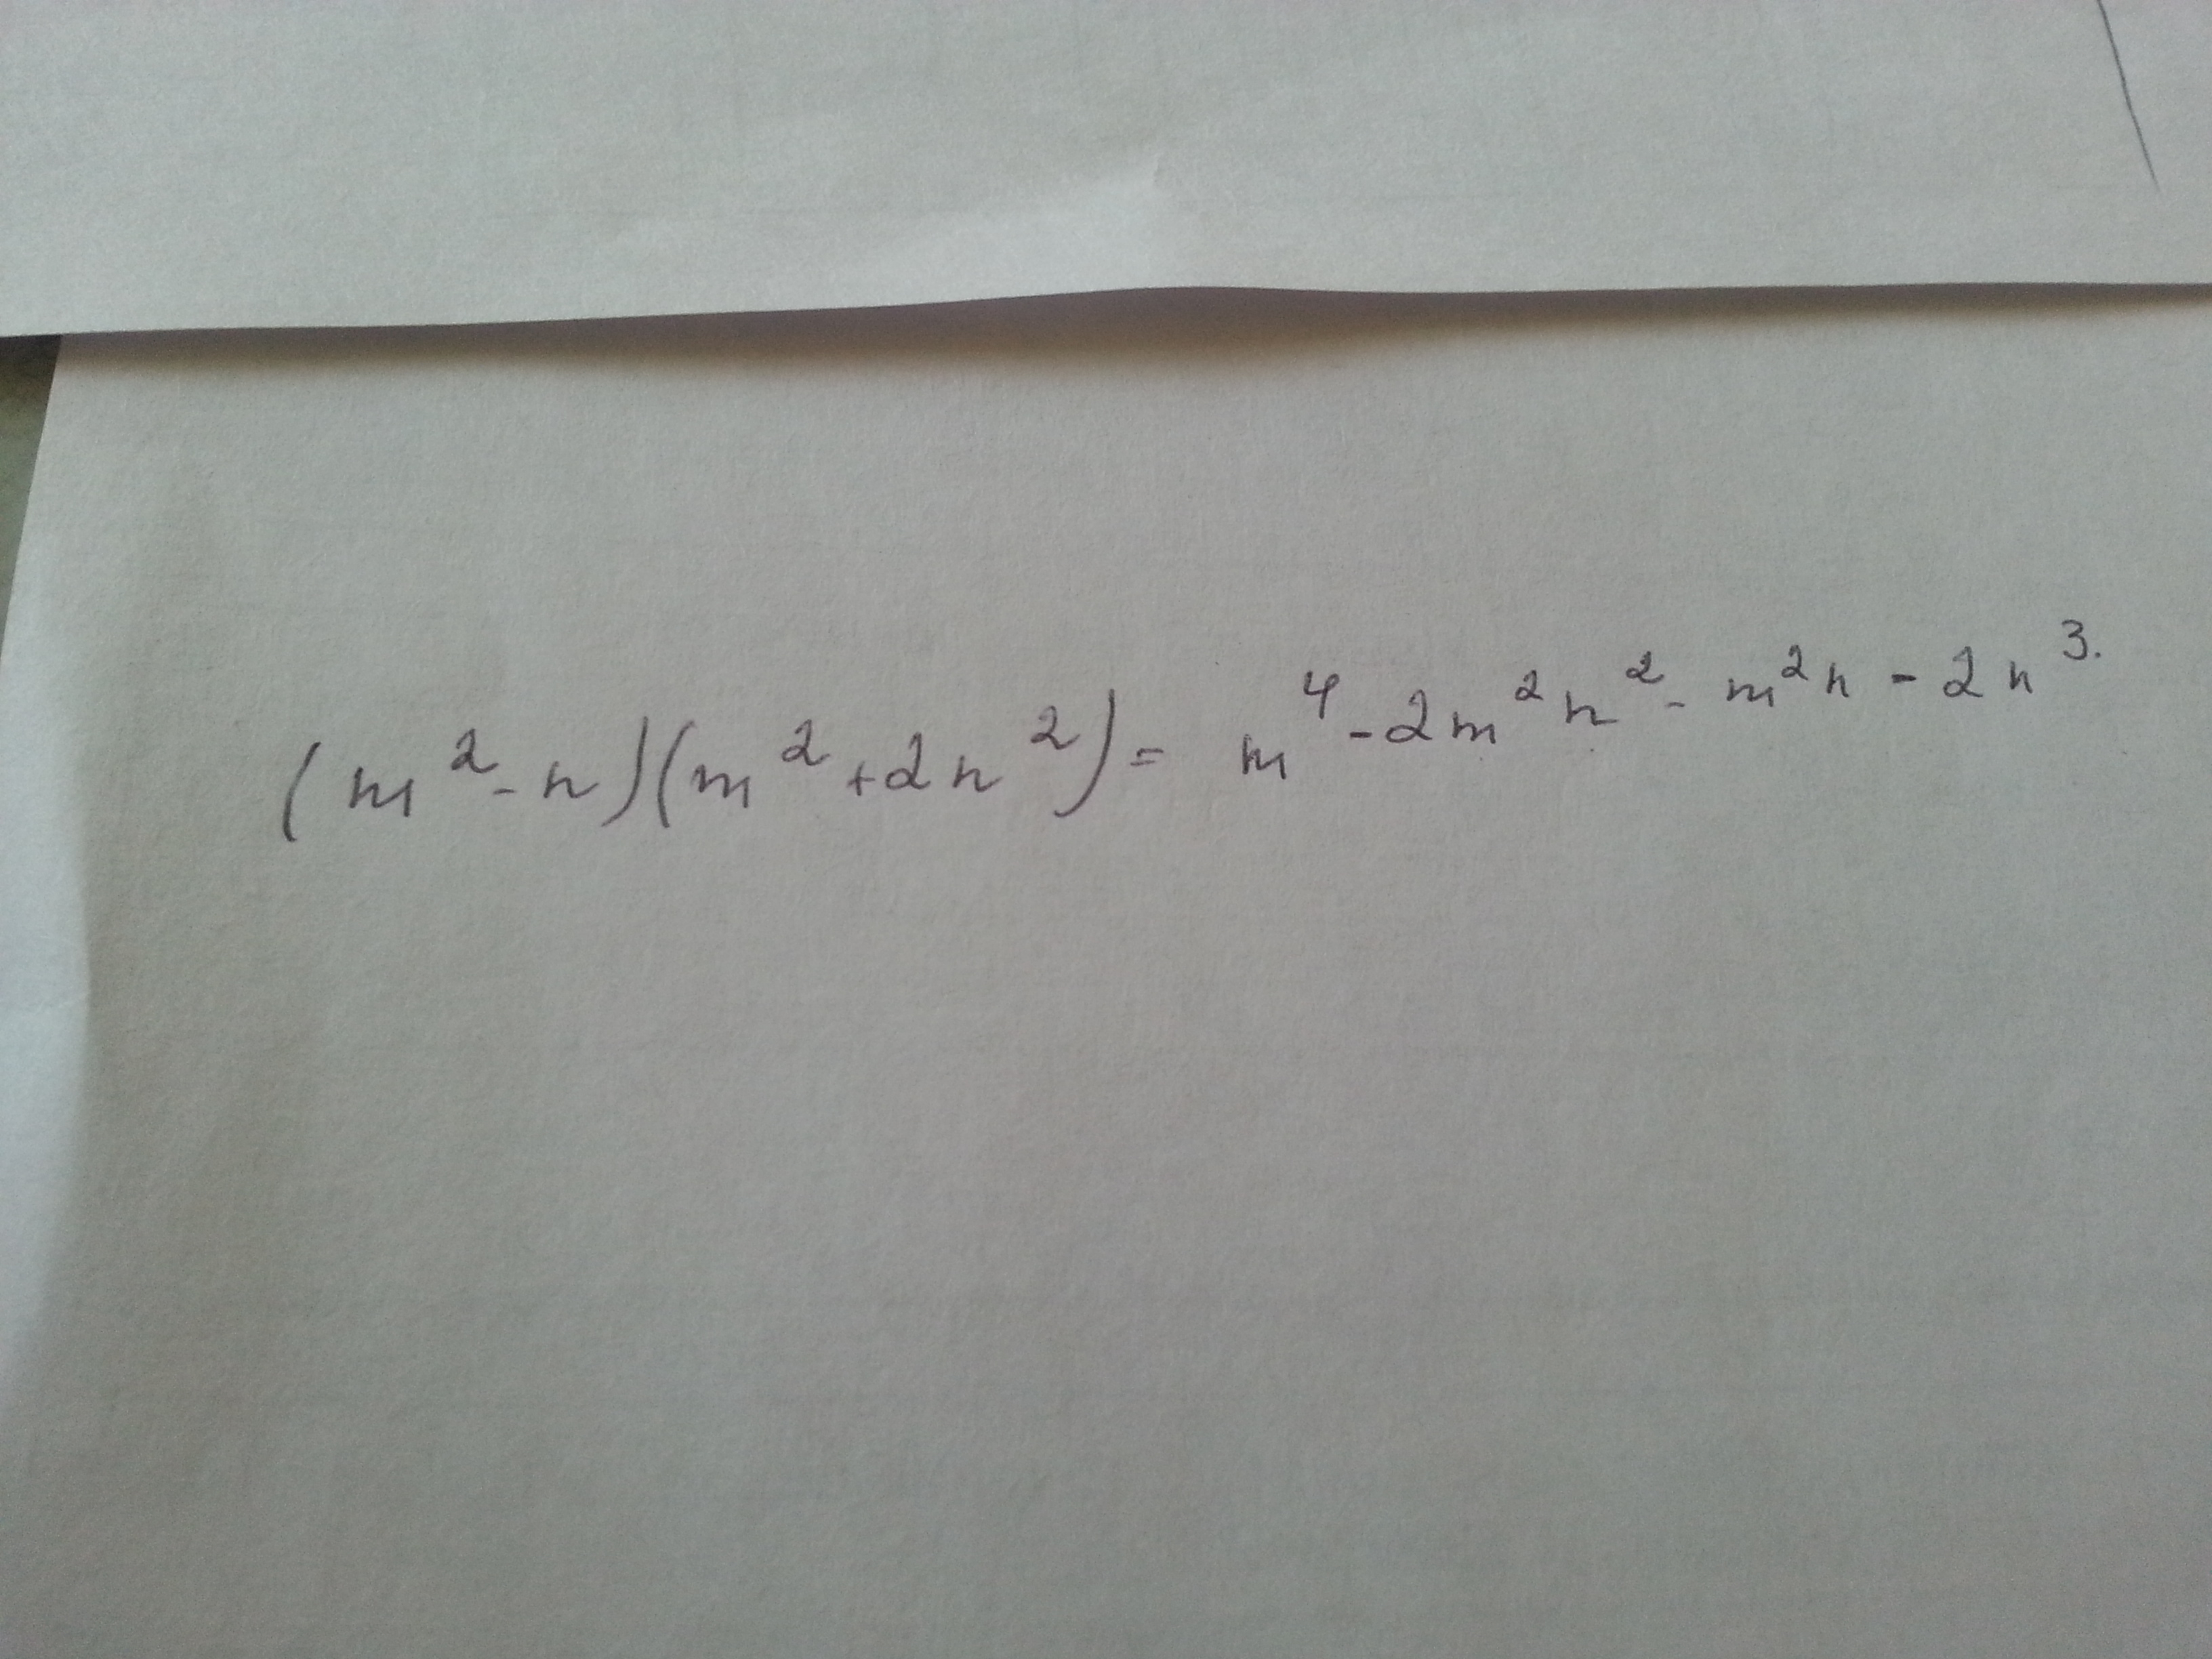 (m²-n)(m²+2n²)= m⁴-2m²n²-m²n-2n³.